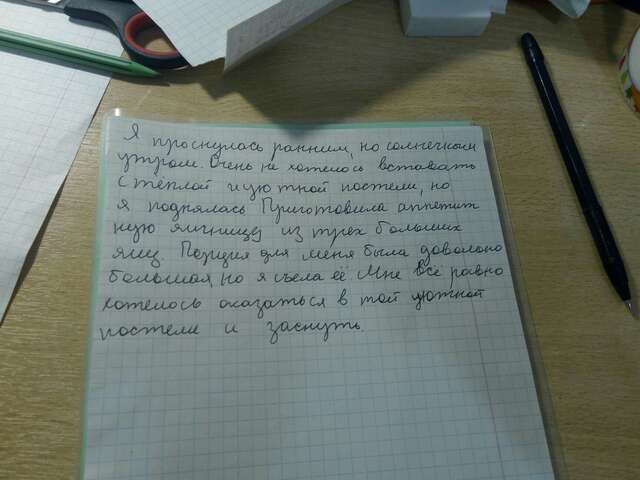 Я проснулась ранним, но солнечным
утром. Очень не хотелось вставать
с тёплой и уютной постели, но
я поднялась Приготовила аппетит
ную яичницу из трех больших
яиц. Порция для меня была довольно
большая, но я съела её. Мне всё равно
хотелось оказаться в той уютной
постели и заснуть.